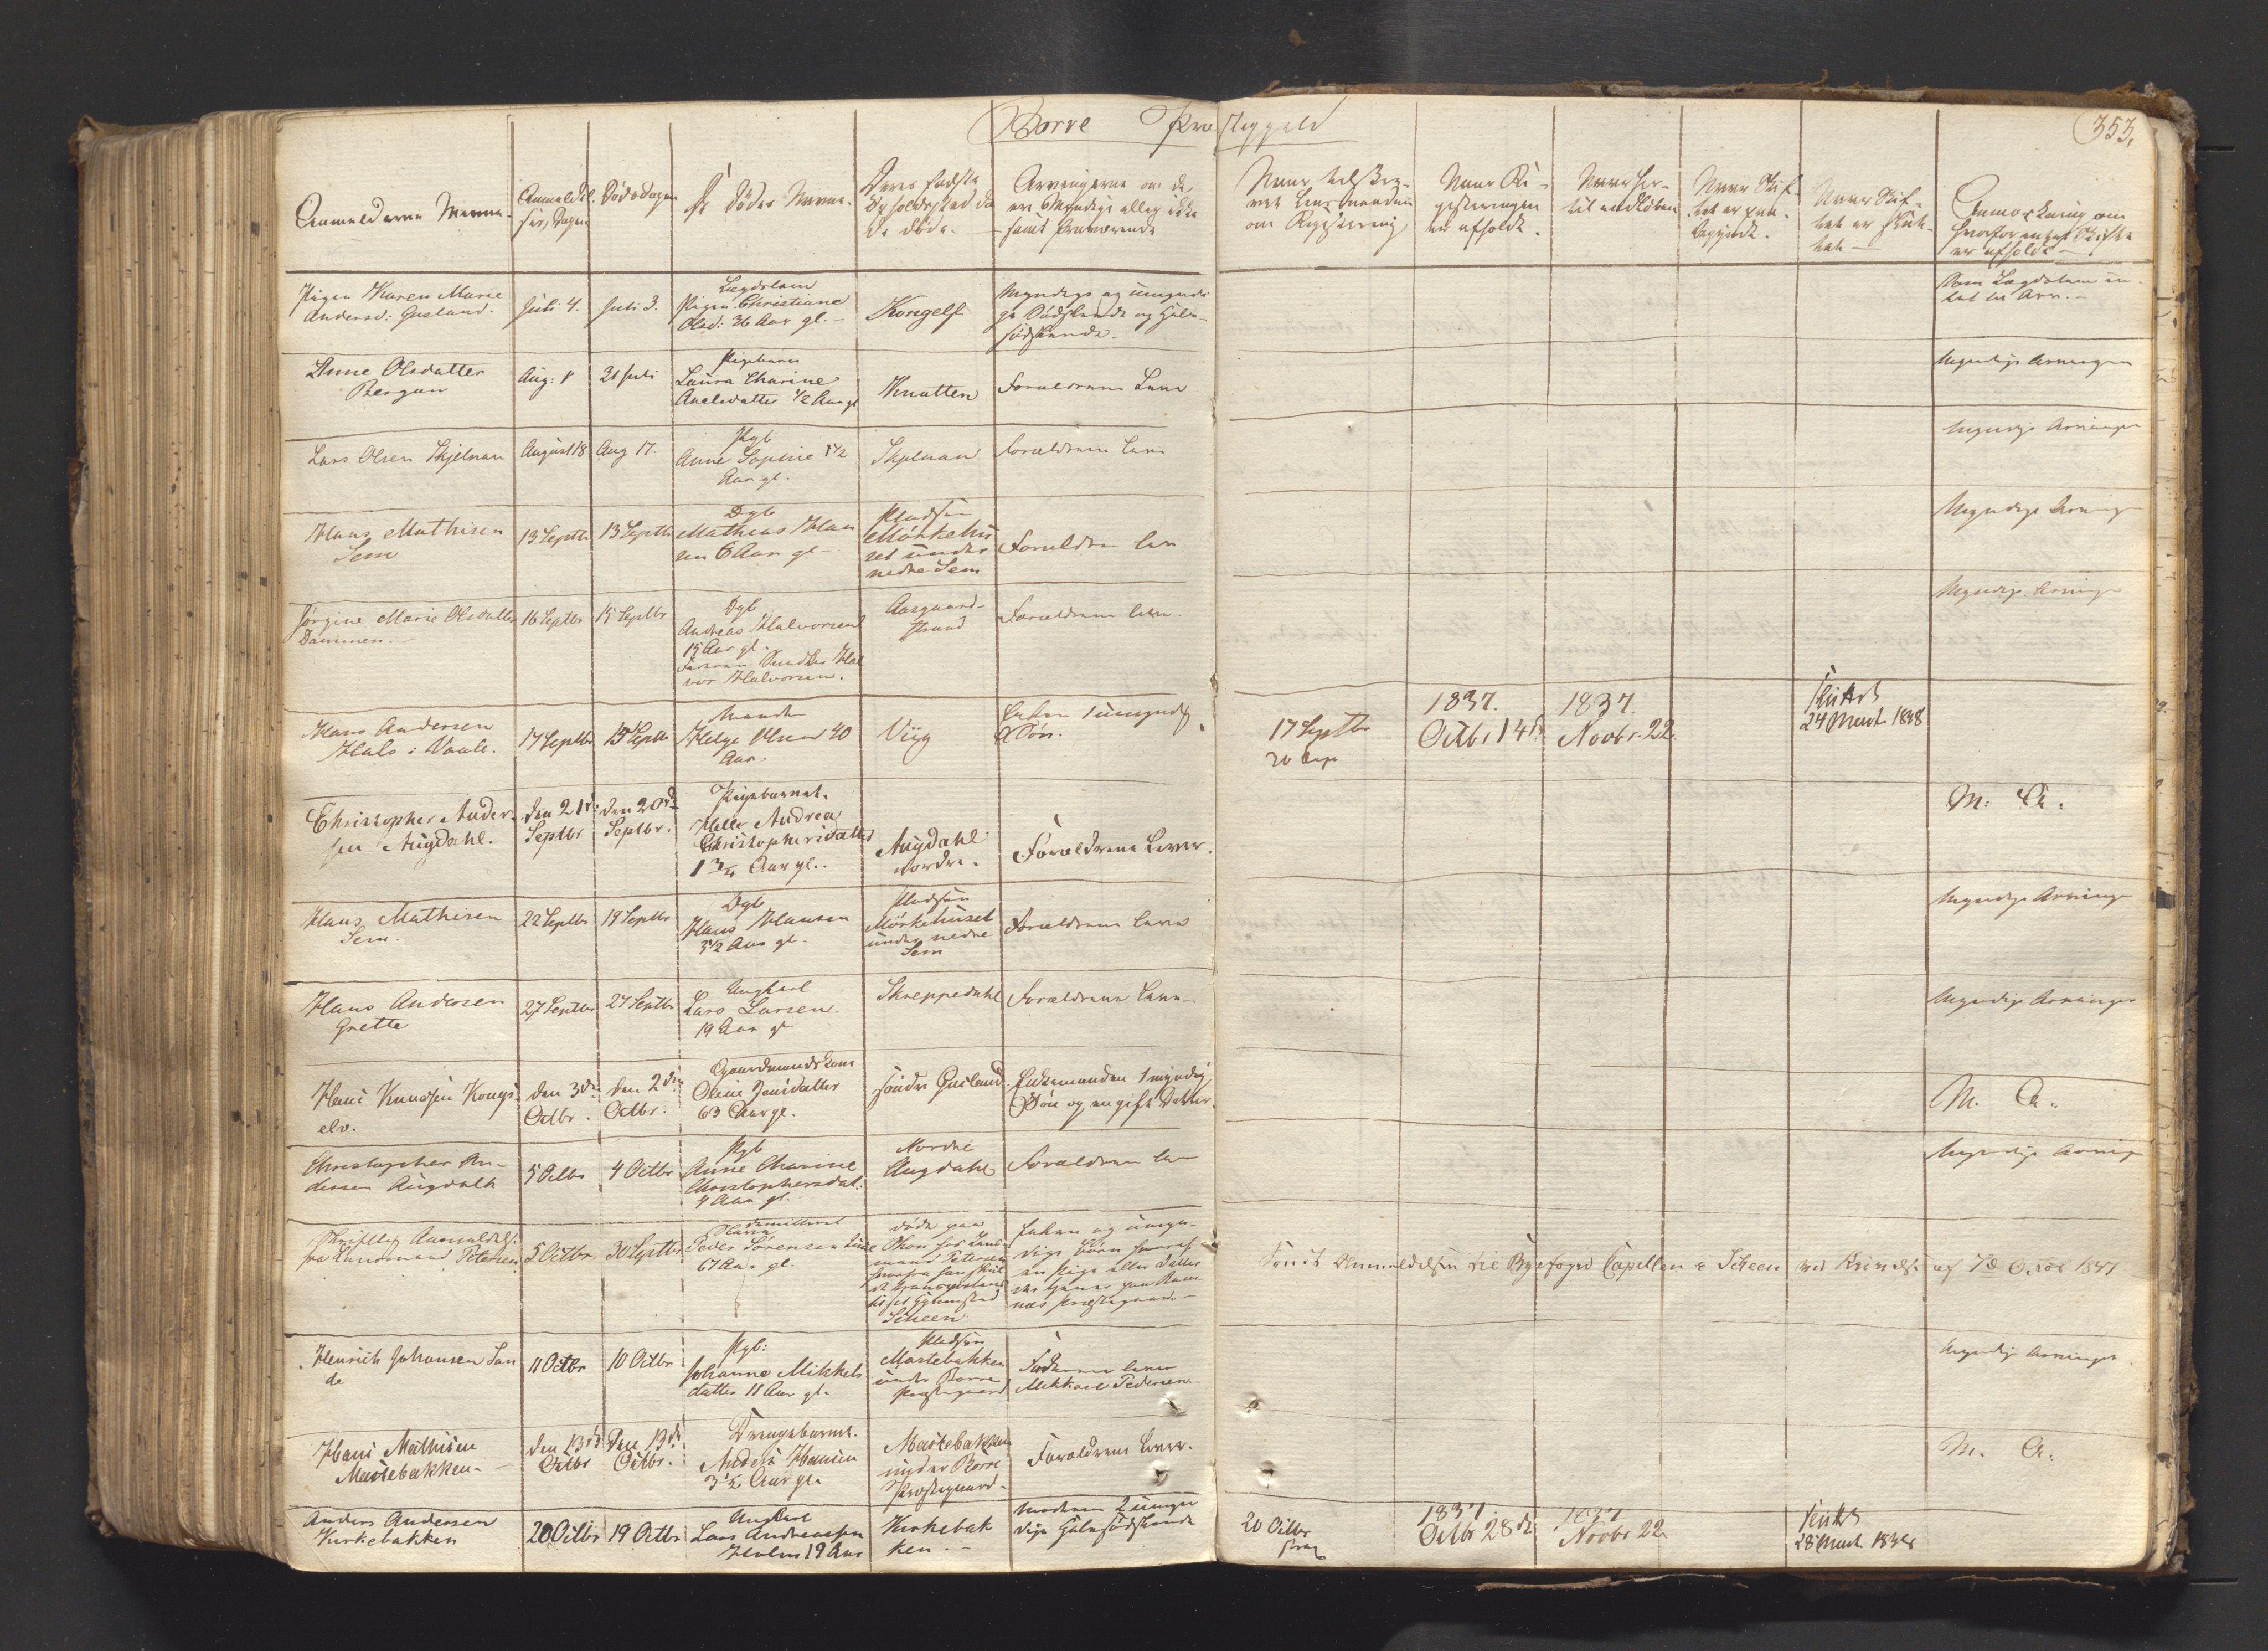 Borre Præstegjeld
353.
Anmelderens Navne.
Anmeldel-
ses Dagen
Dødsdagen
De Dødes Navne.
Deres sidste
Opholdssted da
de døde.
Arvingerne om de
ere Myndige eller ikke
samt fraværende
Naar tilskre-
vet Lensmanden
om Registrering
Naar Re-
gistreringen
er afholdt.
Naar
Naar Skif-
tet er paa-
begyndt.
Naar Skif-
tet er slut-
tet
Anmærkning om
hvorfor intet Skifte
er afholdt
Pigen Karen Marie
Andersd: Gusland.
Juli 4.
Juli 3.
Lægdslem
Pigen Christiane
Olsd: 36 Aar gl.
Kongelf
Myndige og umyndi
ge Sødskende og Halv-
sødskende.
Som Lægdslem in-
tet til Arv.
Anne Olsdatter
Bergan
Aug: 1
31 Juli
Pigebarn
Laura Charine
Axelsdatter 1/2 Aar gl
Knatten
Forældrene leve
Myndige Arvinger
Lars Olsen Skjelnan
August 18
Aug 17.
Pgb
Anne Sophie 1 1/2
Aar gl.
Skjelnan
Forældrene leve
Myndige Arvinger
Hans Mathisen
Sem
13 Septbr
13 Septbr
Dgb
Mathias Han
sen 6 Aar gl
Pladsen
Mørkehu
set under
nedre Sem
Forældre leve
Myndige Arvinger
Jørgine Marie Olsdatter
Dammen.
16 Septbr
15 Septbr
Dgb
Andreas Halvorsen
15 Aar gl.
Faderen Hal
vor Halvorsen.
Aasgaard-
strand
Forældrene leve
Myndige Arvinger
Hans Andersen
Hals i Vaale.
17 Septbr
15 Septbr
Manden
Helge Olsen 40
Aar.
Viig
Enken 1 umyndig
Søn.
17 Septbr
1837.
Octbr 14de
1837
Novbr. 22.
sluttet
24 Marts 1838
Christopher Ander-
sen Augdahl.
Den 21de
Septbr
Den 20de
Septbr.
Pigebarnet.
Helle Andrea
Christophersdatter
1 3/4 Aar gl.
Augdahl
nordre.
Forældrene Lever.
M: A.
Hans Mathisen
Sem.
22 Septbr
19 Septbr
Dgb
Hans Hansen
3 1/2 Aar gl.
Pladsen
Mørkehuset
under nedre
Sem
Forældrene leve
Myndige Arvinger
Hans Andersen
Grette
27 Septbr
27 Septbr
Ungkarl
Lars Larsen.
19 Aar gl
Skreppedahl
Forældrene leve
Myndige Arvinger
Hans Knudsen Kongs-
elv.
den 3die
Octbr.
den 2den
Octbr.
Gaardmandskone
Oline Jensdatter
63 Aar gl.
søndre Gusland.
Enkemanden 1 myndig
Søn og en gift Datter.
M. A.
Christopher An-
dersen Augdahl
5 Octbr
4 Octbr
Pgb
Anne Charine
Christophersdat:
4 Aar gl.
Nordre
Augdahl
Forældrene leve
Myndige Arvinger
Skriftlig Anmeldelse
fra Lensmand Petersen
5 Octbr
30 Septbr
Peder Sørensen
67 Aar gl.
døde paa
hos Lens-
mand Petersen
hvorfra han skul
de transporteres
til sit Hjemsted
Scheen
Enken og umyn-
dige Børn hvoraf
en Pige eller Datter
der tjener paa Ram
næs Præstegaard.
Sendt Anmeldelsen til Byefoged Capellen i Scheen ved Brevdag af 7de Octbr 1837
Henrich Johansen San
de
11 Octbr
10 Octbr
Pgb:
Johanne Mikkels
datter 11 Aar gl.
Pladsen
Mastebakken
under Borre
Præstegaard
Faderen lever
Mikkael Pedersen
Myndige Arvinger
Hans Mathisen
Mastebakken.
den 13de
Octbr
Den 13de
Octbr.
Drengebarnet.
Anders Hansen
3 1/2 Aar gl.
Mastebakken
under Borre
Præstegaard.
Forældrene Lever.
M. A.
Anders Andersen
Kirkebakken
20 Octbr
19 Octbr
Ungkarl
Lars Andreassen
Holm 19 Aar
Kirkebak
ken.
Moderen 2 umyn
dige Halvsødskende
20 Octbr
1837
Octbr 28de
1837
Novbr 22
sluttet
28 Marts 1838